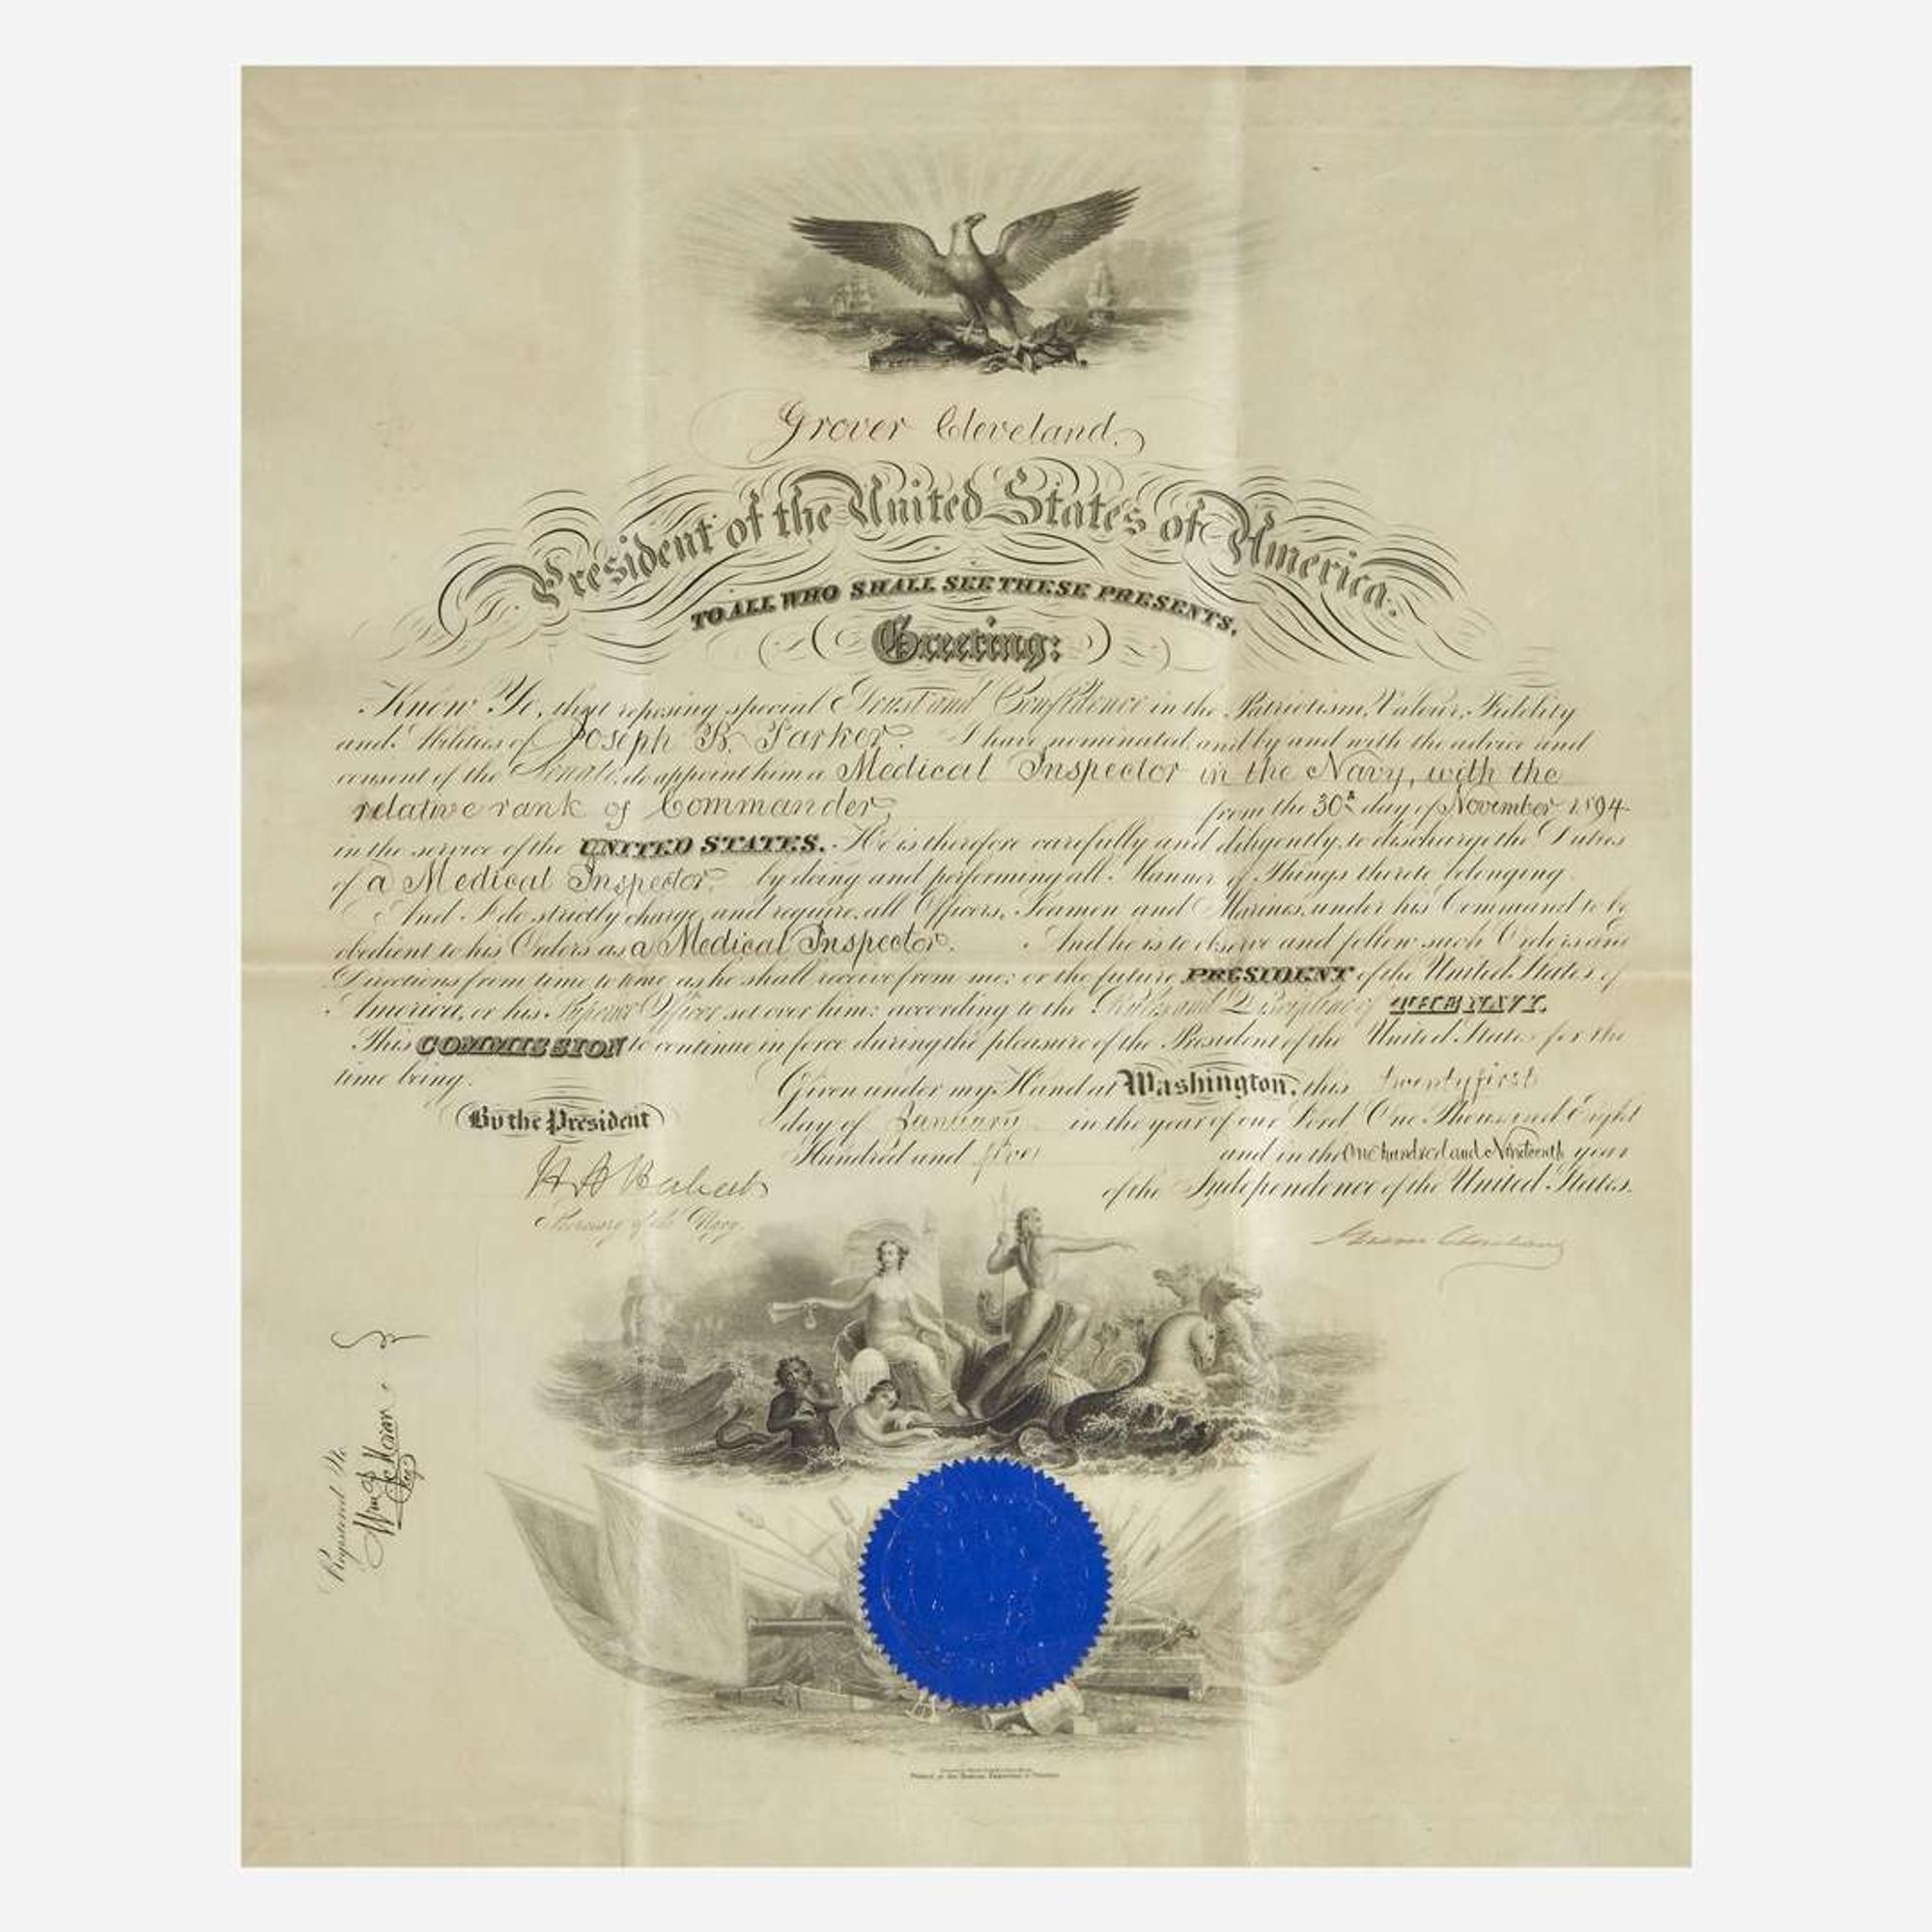 Grover Cleveland,
President of the United States of America.
TO ALL WHO SHALL SEE THESE PRESENTS,
Greeting:
Know Ye, that reposing special Trust and Confidence in the Patriotism, Valour, Fidelity
and Abilities of Joseph B. Parker. I have nominated and by and with the advice and
consent of the Senate, do appoint him a Medical Inspector in the Navy, with the
relative rank of Commander, from the 30th day of November 1894
in the service of the UNITED STATES. He is therefore carefully and diligently to discharge the Duties
of a Medical Inspector, by doing and performing all Manner of Things thereto belonging.
And I do strictly charge, and require, all Officers, Seamen and Marines, under his Command to be
obedient to his Orders as a Medical Inspector. And he is to observe and follow such Orders and
Directions from time to time as he shall receive from me; or the future PRESIDENT of the United States of
America, or his Superior Officer set over him: according to the Rules and Discipline of THE NAVY.
This COMMISSION to continue in force during the pleasure of the President of the United States for the
time being.
Given under my Hand at Washington, this twenty first
By the President
day of January in the year of our Lord One Thousand Eight
Hundred and and in the One hundred and Nineteenth year
of the Independence of the United States.
H A Herbert
Secretary of the Navy.
Grover Cleveland
Registered No.